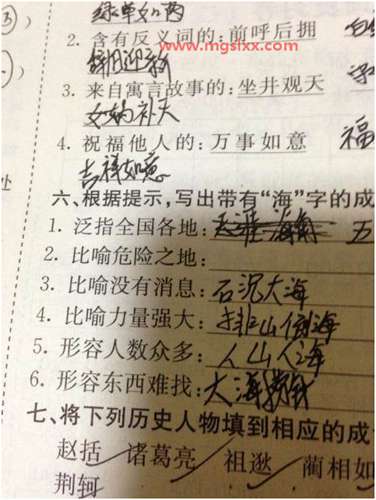 绿草如茵
2. 含有反义词的: 前呼后拥
www.mgslxx.com
辞旧迎新
3. 来自寓言故事的: 坐井观天
女娲补天
4. 祝福他人的: 万事如意 福
吉祥如意
六、根据提示,写出带有“海”字的成
1. 泛指全国各地: 天涯海角 五
2. 比喻危险之地:
3. 比喻没有消息: 石沉大海
4. 比喻力量强大: 排山倒海
5. 形容人数众多: 人山人海
6. 形容东西难找: 大海捞针
七、将下列历史人物填到相应的成
赵括 诸葛亮 祖逖 蔺相如
荆轲